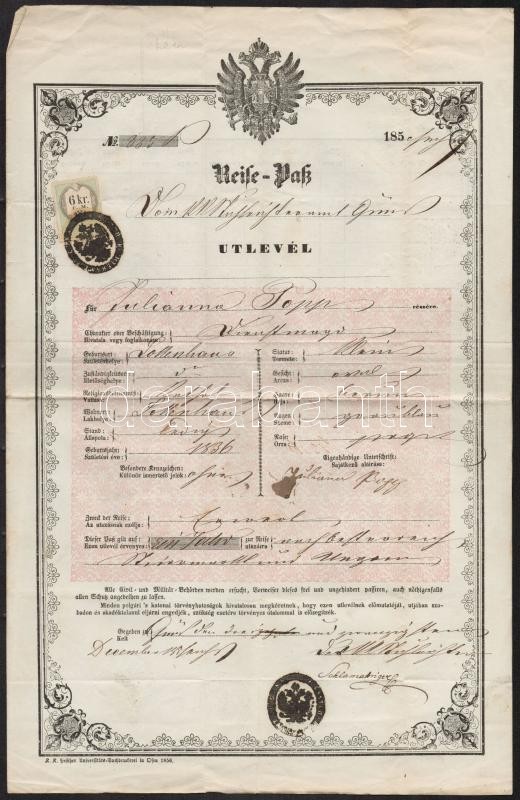 No.
185
Reise-Paß
6 kr.
Vom Güns
UTLEVÉL
Für Julianna Popp részére.
Charakter oder Beschäftigung: Dienstmagd
Hivatala vagy foglalatossága:
Geburtsort Lokenhaus Statur: Klein
Születéshelye: Termete:
Zuständigkeitsort Gesicht: oval
Illetőséghelye: Arcza:
Religionsbekenntniss Haare
Vallása
Wohnort Lokenhaus Augen graublau
Lakhelye Szeme
Stand: ledig Nase:
Állapota: Orra:
Geburtsjahr: 1836 Eigenhändige Unterschrift:
Születési éve: Sajátkezű aláirása:
Besondere Kennzeichen: Juliana Popp
Különös ismertető jelek:
Zweck der Reise: Erwerb
Az utazásnak czélja:
Dieser Paß gilt auf: ein Jahr zur Reise nach Oesterreich
Ezen utlevél érvényes: utazásra
Steiermark und Ungarn
Alle Civil- und Militär-Behörden werden ersucht, Vorweiser dieses frei und ungehindert passiren, auch nöthigenfalls
allen Schutz angedeihen zu lassen.
Minden polgári 's katonai törvényhatóságok hivatalosan megkéretnek, hogy ezen utlevélnek előmutatóját, utjában sza-
badon és akadálytalanul eljárni engedjék, szükség esetére törvényes oltalommal is elősegítsék.
Gegeben zu Güns den und zwanzigsten
Kelt
December
Schlamadinger
K. K. Universitäts-Buchdruckerei in Ofen 1856.
darabanth